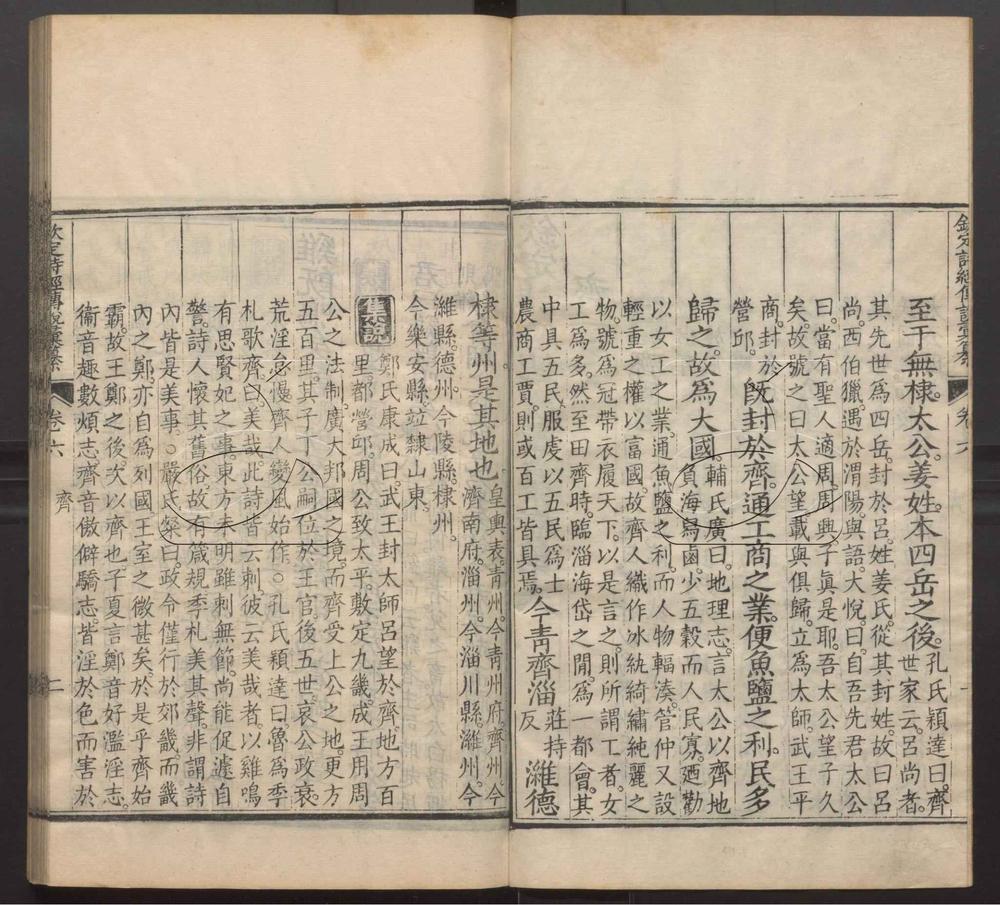 欽定詩經傳說彙纂
卷六
至于無棣。太公姜姓。本四岳之後。孔氏穎達曰。齊
世家云。呂尚者。
其先世爲四岳。封於呂。姓姜氏。從其封姓。故曰呂
尚。西伯獵。遇於渭陽。與語。大悅。曰。自吾先君太公
曰。當有聖人適周。周興。子眞是耶。吾太公望子久
矣。故號之曰太公望。載與俱歸。立爲太師。武王平
商。封於
營邱。
既封於齊。通工商之業。便魚鹽之利。民多
歸之。故爲大國。輔氏廣曰。地理志。言太公以齊地
負海舄鹵。少五穀。而人民寡。廼勸
以女工之業。通魚鹽之利。而人物輻湊。管仲又設
輕重之權以富國。故齊人織作冰紈綺繡純麗之
物。號爲冠帶衣履天下。以是言之。則所謂工者。女
工爲多。然至田齊時。臨淄海岱之閒。爲一都會。其
中具五民。服虔以五民爲士
農商工賈。則或百工皆具焉。
今青齊淄
莊持
反
濰德
棣等州。是其地也。皇輿表。青州。今青州府。齊州。今
濟南府。淄州。今淄川縣。濰州。今
濰縣。德州。今陵縣。棣州。
今樂安縣。竝隸山東。
集說
鄭氏康成曰。武王封太師呂望於齊。地方百
里。都營邱。周公致太平。敷定九畿。成王用周
公之法。制廣大邦國之境。而齊受上公之地。更方
五百里。其子丁公嗣位於王官。後五世。哀公政衰。
荒淫怠慢。齊人變風始作。○孔氏穎達曰。魯爲季
札歌齊。曰美哉。此詩皆云刺。彼云美哉者。以雞鳴
有思賢妃之事。東方未明雖刺無節。尚能促遽自
警。詩人懷其舊俗。故有箴規。季札美其聲。非謂詩
內皆是美事。○嚴氏粲曰。政令僅行於郊畿。而畿
內之鄭。亦自爲列國。王室之微甚矣。於是乎齊始
霸。故王鄭之後。次以齊也。子夏言鄭音好濫淫志。
衞音趣數煩志。齊音傲僻驕志。皆淫於色而害於
欽定詩經傳說彙纂
卷六
齊
二